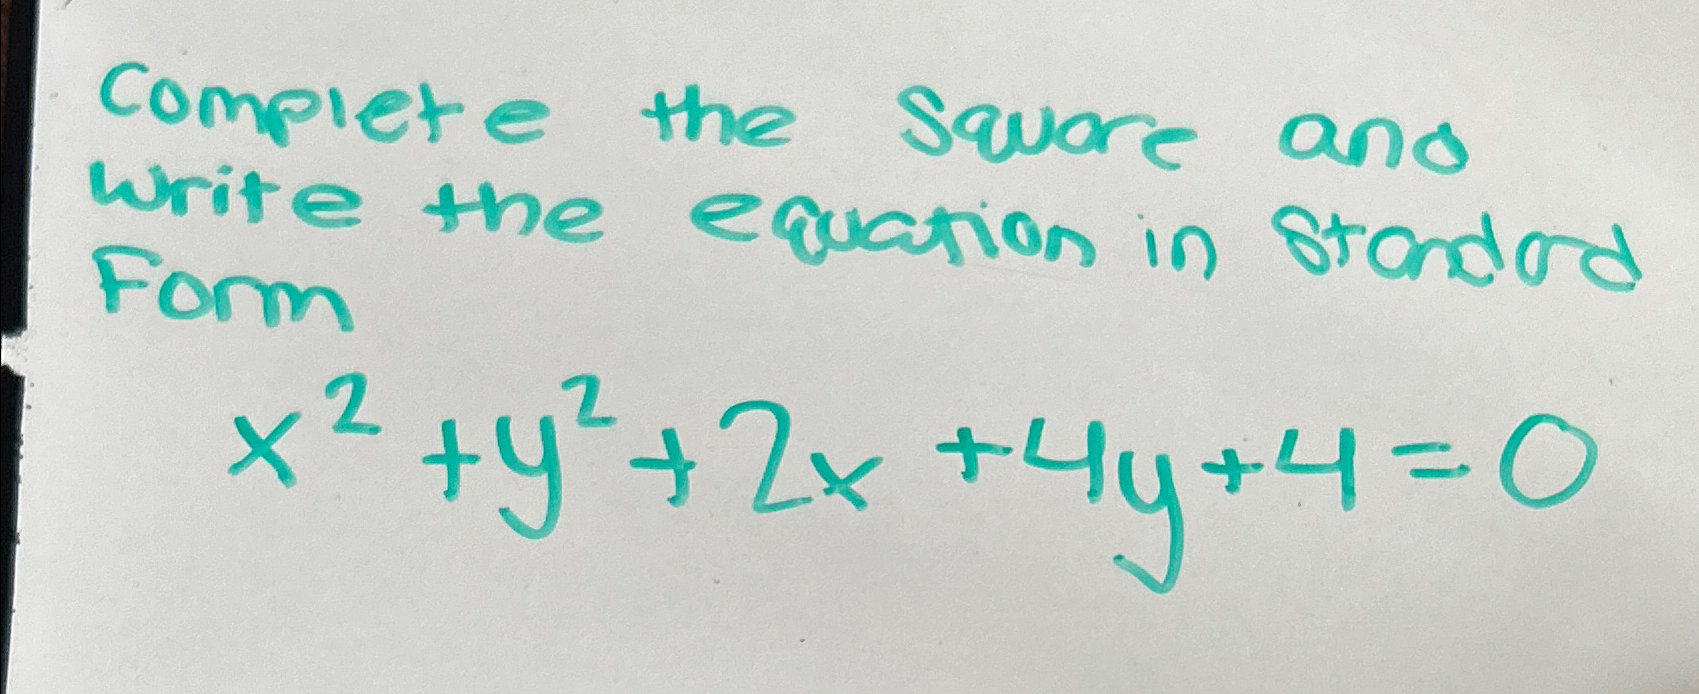 Complete the Square and
Write the equation in Standard
Form
x² + y² + 2x + 4y + 4 = 0